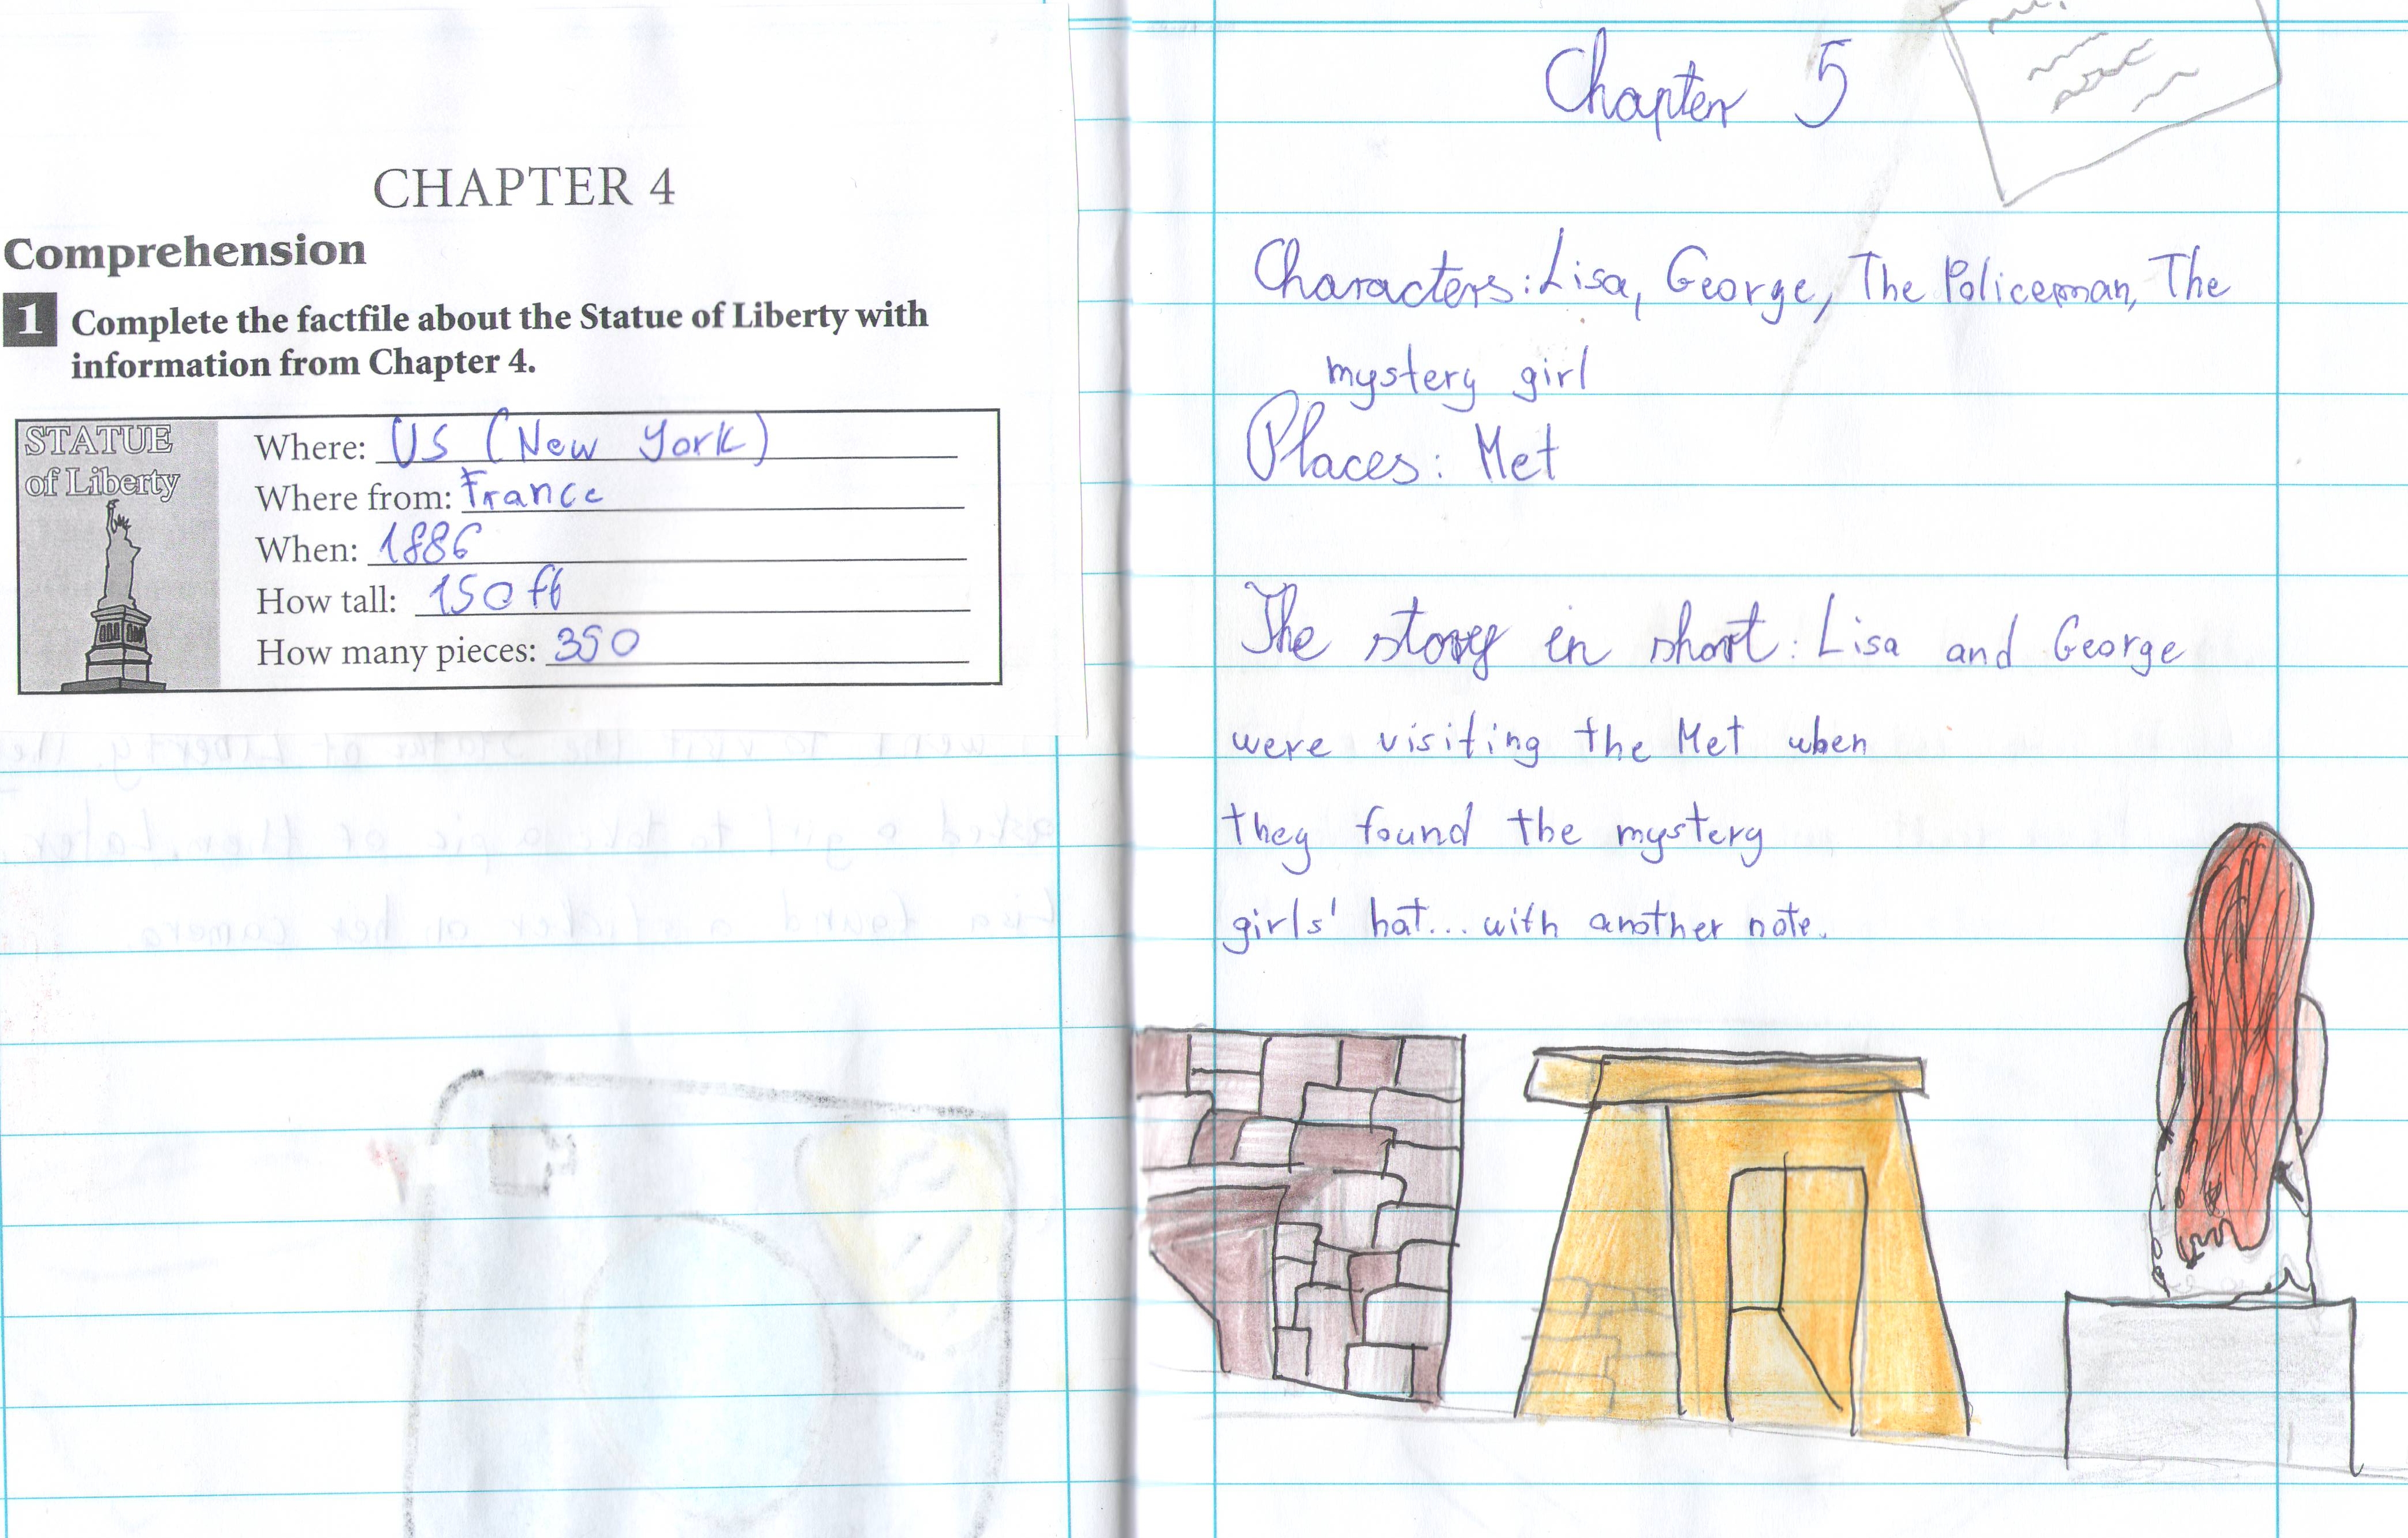 CHAPTER 4
Comprehension
1 Complete the factfile about the Statue of Liberty with
information from Chapter 4.
STATUE
of Liberty
Where: US (New York)
Where from: France
When: 1886
How tall: 150 ft
How many pieces: 350
Chapter 5
Characters: Lisa, George, The Policeman, The
mystery girl
Places: Met
The story in short: Lisa and George
were visiting the Met when
they found the mystery
girls' hat... with another note.